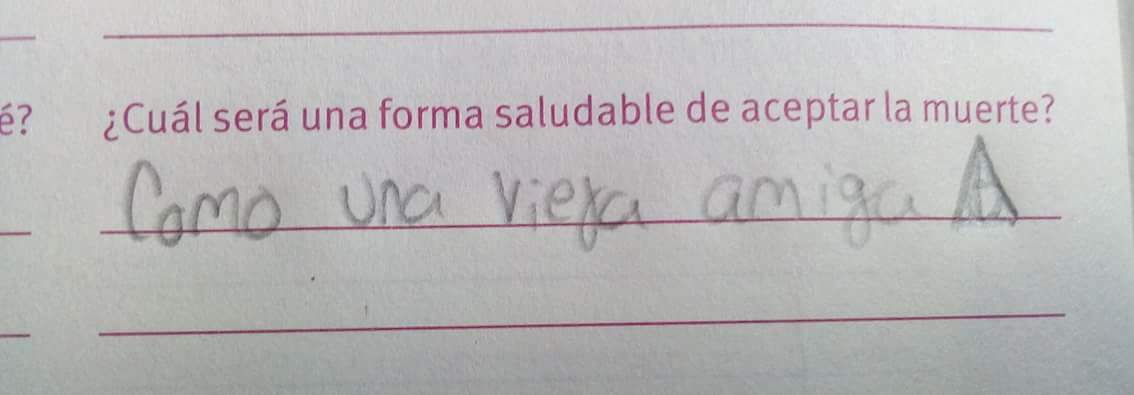 é? ¿Cuál será una forma saludable de aceptar la muerte?
Como una Viexa amiga